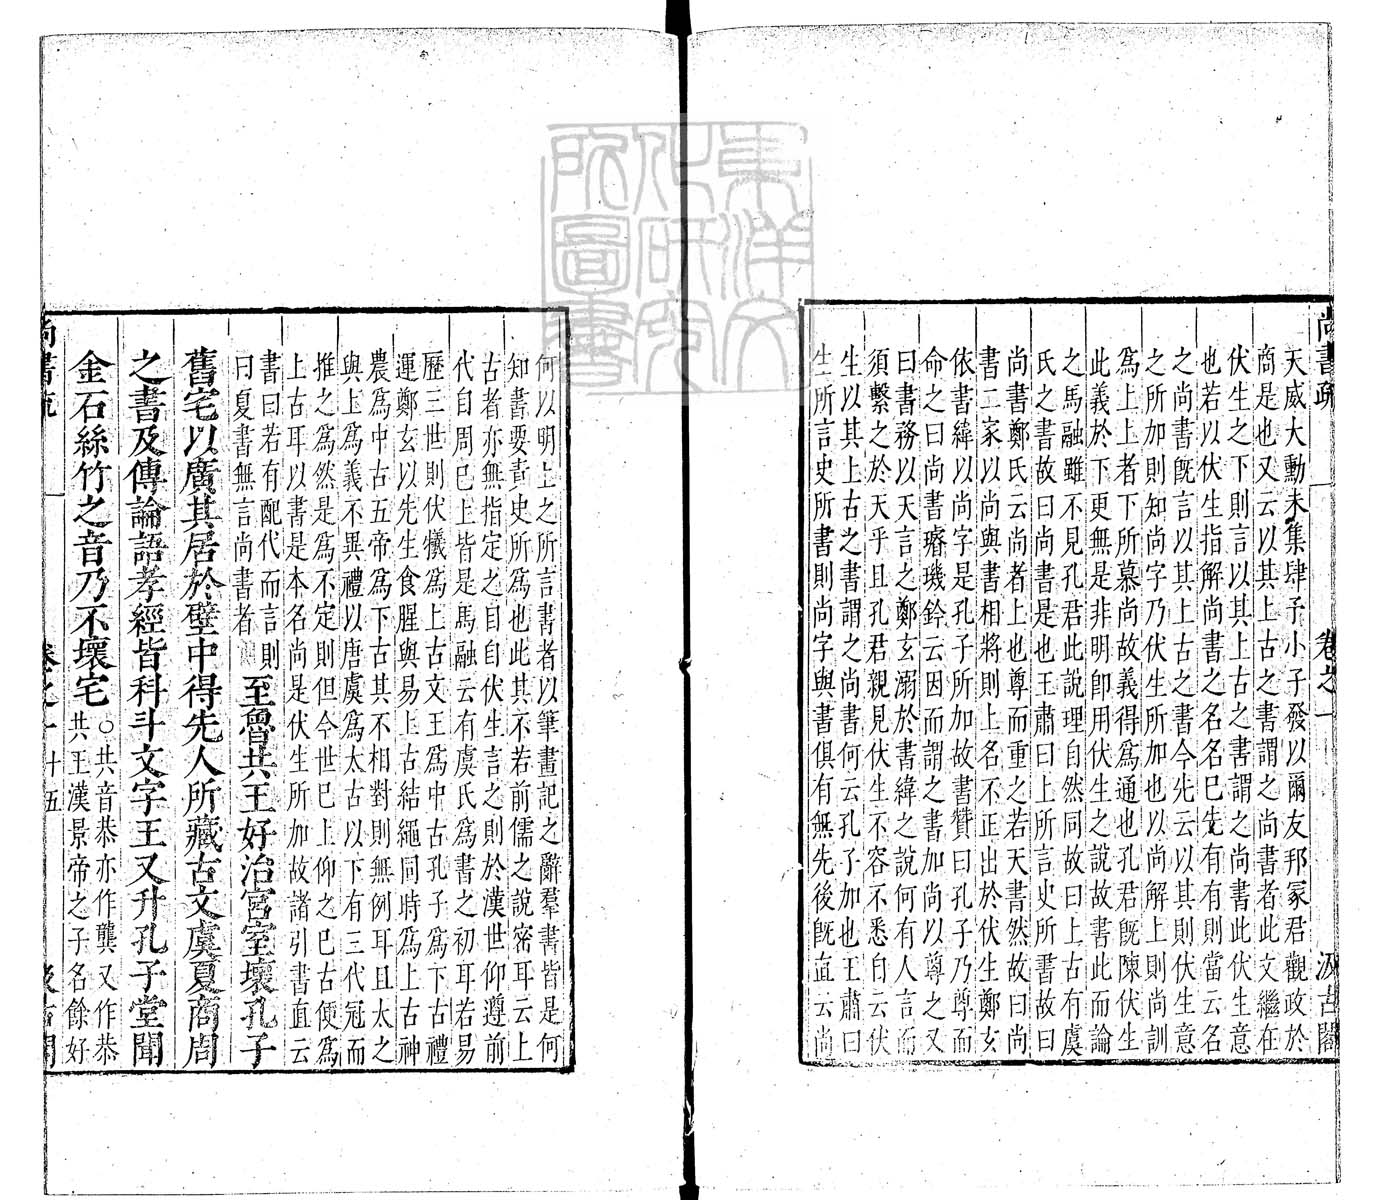 尚書疏 卷之一 汲古閣
天威大勳未集肆予小子發以爾友邦冢君觀政於
商是也又云以其上古之書謂之尚書者此文繼在
伏生之下則言以其上古之書謂之尚書此伏生意
也若以伏生指解尚書之名名已先有有則當云名
之尚書旣言以其上古之書今先云以其則伏生意
之所加則知尚字乃伏生所加也以尚解上則尚訓
爲上上者下所慕尚故義得爲通也孔君旣陳伏生
此義於下更無是非明卽用伏生之說故書此而論
之馬融雖不見孔君此說理自然同故曰上古有虞
氏之書故曰尚書是也王肅曰上所言史所書故曰
尚書鄭氏云尚者上也尊而重之若天書然故曰尚
書二家以尚與書相將則上名不正出於伏生鄭玄
依書緯以尚字是孔子所加故書贊曰孔子乃尊而
命之曰尚書璿璣鈐云因而謂之書加尚以尊之又
曰書務以天言之鄭玄溺於書緯之說何有人言而
須繫之於天乎且孔君親見伏生不容不悉自云伏
生以其上古之書謂之尚書何云孔子加也王肅曰
生所言史所書則尚字與書俱有無先後旣直云尚
何以明上之所言書者以筆畫記之辭羣書皆是何
知書要責史所爲也此其不若前儒之說密耳云上
古者亦無指定之自自伏生言之則於漢世仰遵前
代自周已上皆是馬融云有虞氏爲書之初耳若易
歷三世則伏犧爲上古文王爲中古孔子爲下古禮
運鄭玄以先生食腥與易上古結繩同時爲上古神
農爲中古五帝爲下古其不相對則無例耳且太之
與上爲義不異禮以唐虞爲太古以下有三代冠而
推之爲然是爲不定則但今世已上仰之已古便爲
上古耳以書是本名尚是伏生所加故諸引書直云
書曰若有配代而言則
曰夏書無言尚書者
至魯共王好治宮室壞孔子
舊宅以廣其居於壁中得先人所藏古文虞夏商周
之書及傳論語孝經皆科斗文字王又升孔子堂聞
金石絲竹之音乃不壞宅
○共音恭亦作龔又作恭
共王漢景帝之子名餘好
尚書疏 卷之一 十五 汲古閣
東洋文
化研究
所圖書